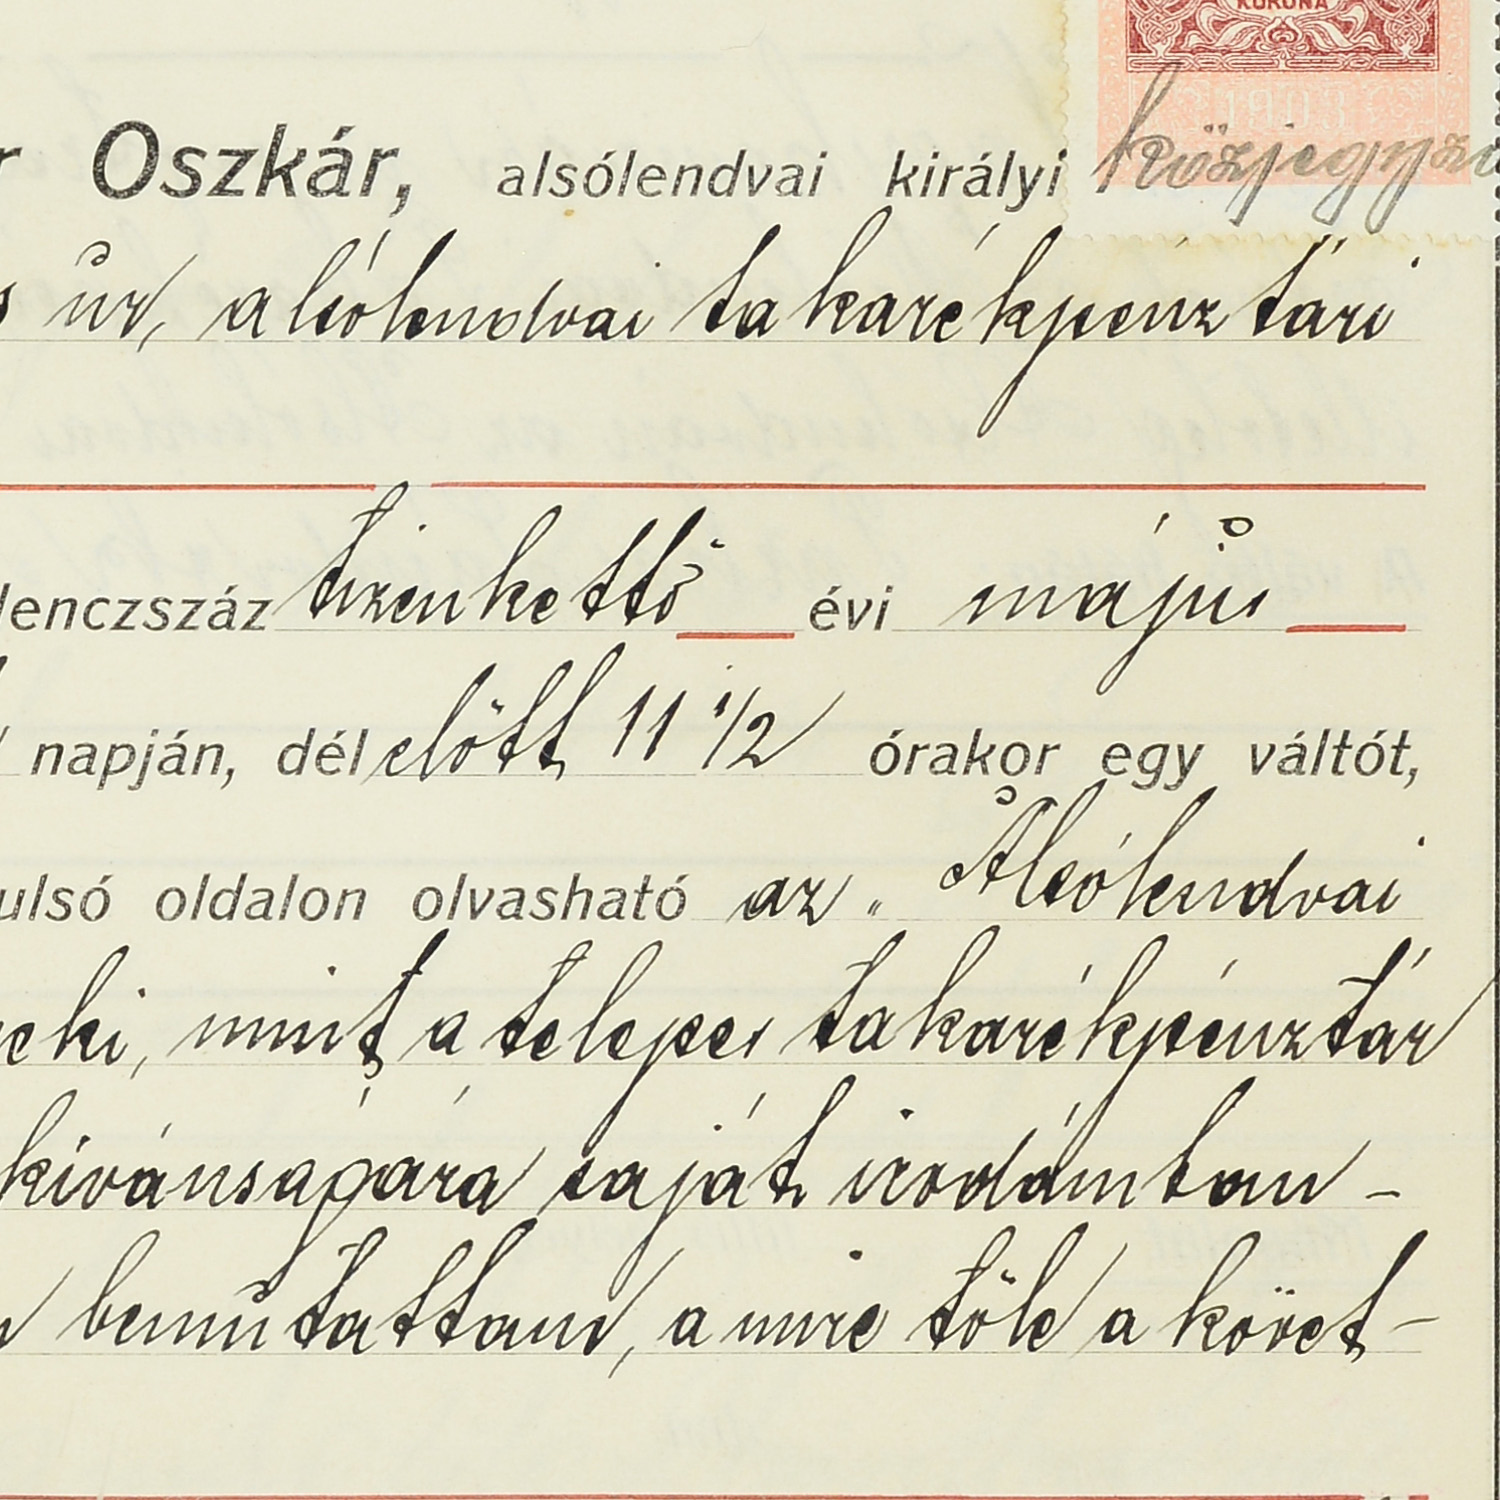 KORONA
1903
r Oszkár, alsólendvai királyi közjegyző
s úr, alsólendvai takarékpénztári
lenczszáz tizenkettő évi május
napján, délelőtt 11 1/2 órakor egy váltót,
ulsó oldalon olvasható az „Alsólendvai
neki, mint a telepes takarékpénztár
kivánságára saját irodámban -
bemutattam, a mire tőle a követ-